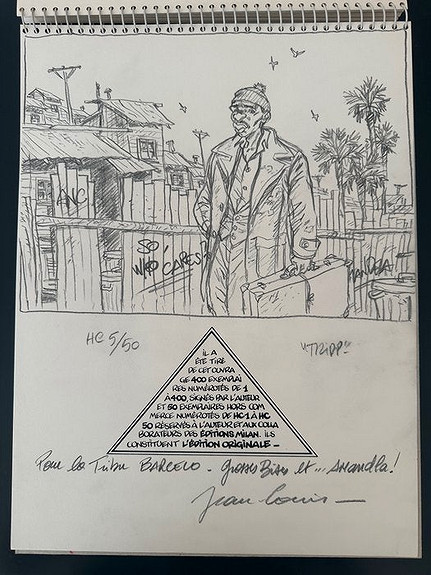 ANC
SO!
WHO CARES?
MANDELA
HC 5/50
"TRIPP"
IL A
ÉTÉ TIRÉ
DE CET OUVRA
GE 400 EXEMPLAI
RES NUMÉROTÉS DE 1
À 400, SIGNÉS PAR L'AUTEUR
ET 50 EXEMPLAIRES HORS COM
MERCE NUMÉROTÉS DE HC 1 À HC
50 RÉSERVÉS À L'AUTEUR ET AUX COLLA
BORATEURS DES ÉDITIONS MILAN. ILS
CONSTITUENT L'ÉDITION ORIGINALE -
Pour la Tribu BARCELO - Grosses Bises et... AMANDLA!
Jean-Louis -